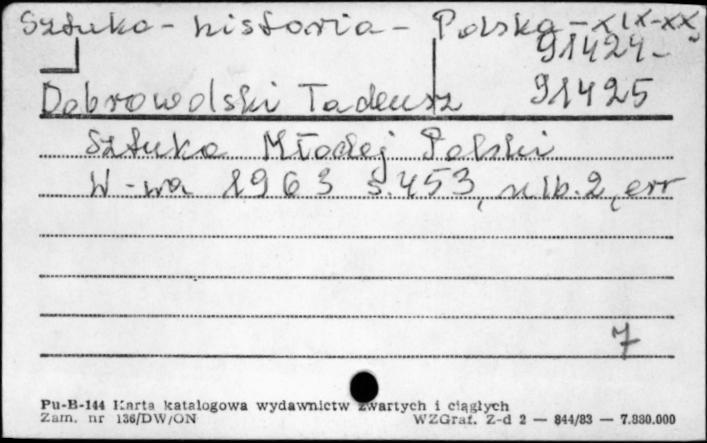 Sztuka - historia - Polska - XIX-XX
91424-
Dobrowolski Tadeusz 91425
Sztuka Młodej Polski
W-wa 1963 s. 453, nlb. 2, err
7
Pu-B-144 Karta katalogowa wydawnictw zwartych i ciągłych
Zam. nr 136/DW/ON WZGraf. Z-d 2 — 844/83 — 7.880.000